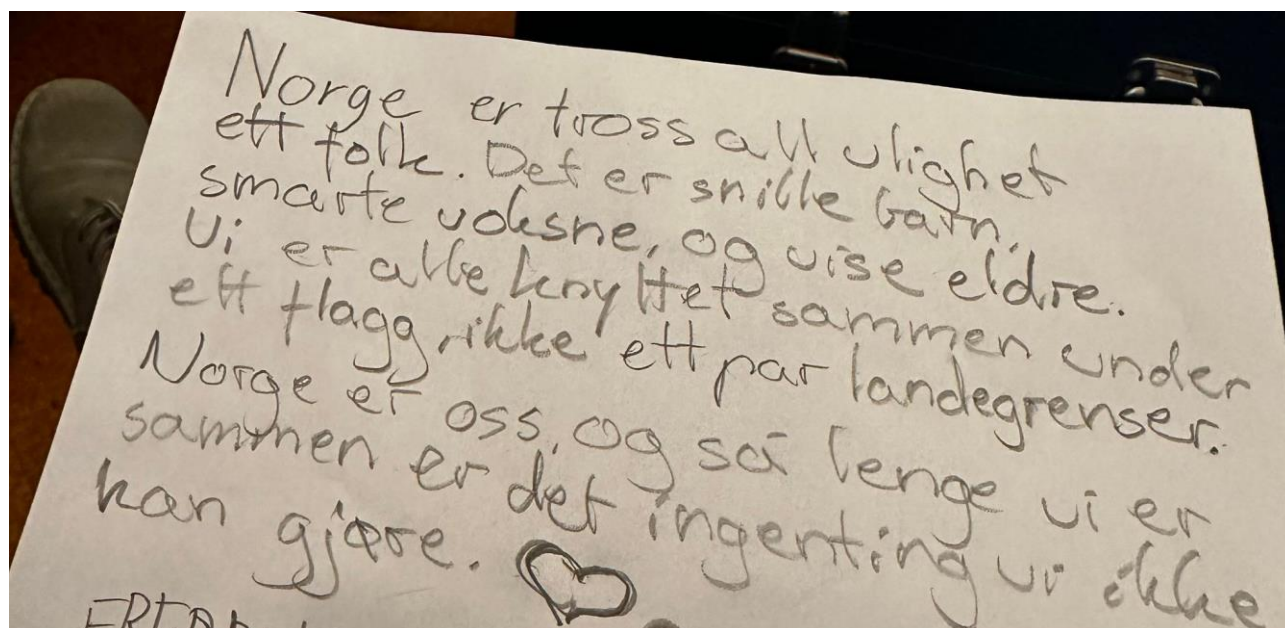 Norge er tross all ulighet
ett folk. Det er snille barn,
smarte voksne, og vise eldre.
Vi er alle knyttet sammen under
ett flagg, ikke ett par landegrenser.
Norge er oss, og så lenge vi er
sammen er det ingenting vi ikke
kan gjøre.